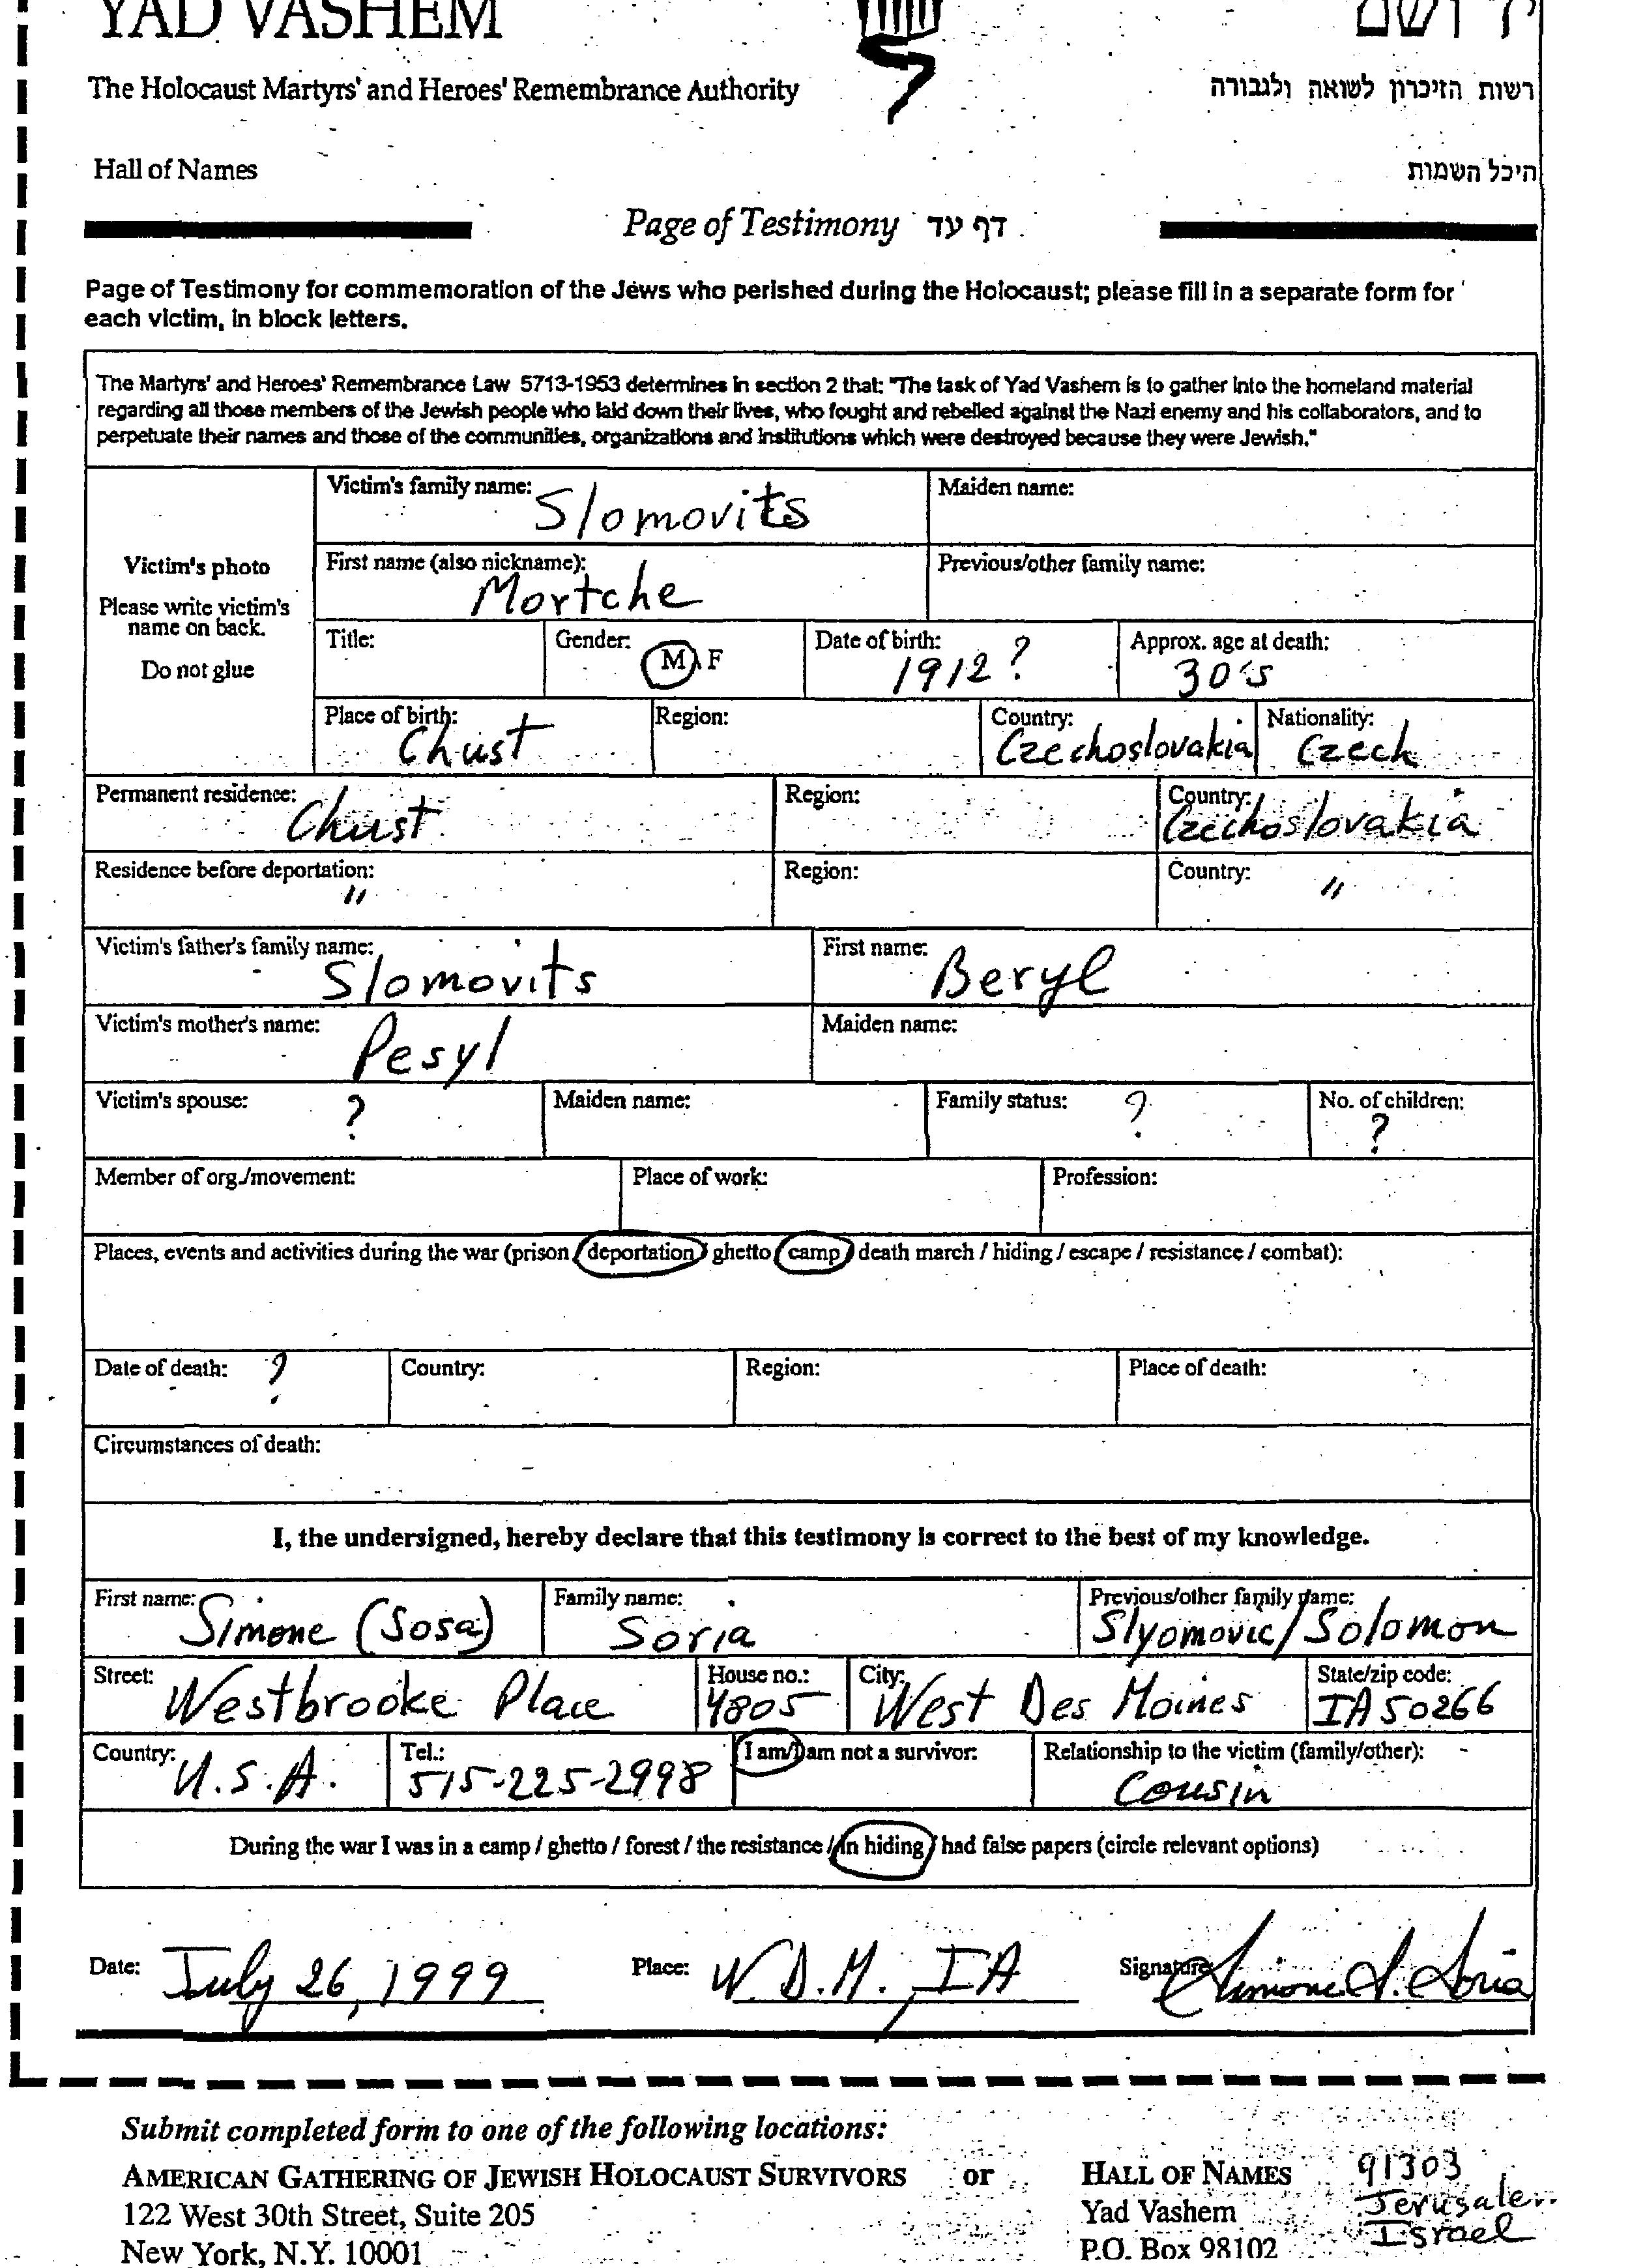 YAD VASHEM יד ושם
The Holocaust Martyrs' and Heroes' Remembrance Authority רשות הזיכרון לשואה ולגבורה
Hall of Names היכל השמות
Page of Testimony דף עד
Page of Testimony for commemoration of the Jews who perished during the Holocaust; please fill in a separate form for
each victim, in block letters.
The Martyrs' and Heroes' Remembrance Law 5713-1953 determines in section 2 that: "The task of Yad Vashem is to gather into the homeland material
regarding all those members of the Jewish people who laid down their lives, who fought and rebelled against the Nazi enemy and his collaborators, and to
perpetuate their names and those of the communities, organizations and institutions which were destroyed because they were Jewish."
Victim's photo
Please write victim's
name on back.
Do not glue
Victim's family name: Slomovits Maiden name:
First name (also nickname): Mortche Previous/other family name:
Title: Gender: M / F Date of birth: 1912? Approx. age at death: 30's
Place of birth: Chust Region: Country: Czechoslovakia Nationality: Czech
Permanent residence: Chust Region: Country: Czechoslovakia
Residence before deportation: " Region: Country: "
Victim's father's family name: Slomovits First name: Beryl
Victim's mother's name: Pesyl Maiden name:
Victim's spouse: ? Maiden name: Family status: ? No. of children: ?
Member of org./movement: Place of work: Profession:
Places, events and activities during the war (prison / deportation / ghetto / camp / death march / hiding / escape / resistance / combat):
Date of death: ? Country: Region: Place of death:
Circumstances of death:
I, the undersigned, hereby declare that this testimony is correct to the best of my knowledge.
First name: Simone (Sosa) Family name: Soria Previous/other family name: Slyomovic/Solomon
Street: Westbrooke Place House no.: 4805 City: West Des Moines State/zip code: IA 50266
Country: U.S.A. Tel.: 515-225-2998 I am/I am not a survivor: Relationship to the victim (family/other): Cousin
During the war I was in a camp / ghetto / forest / the resistance / in hiding / had false papers (circle relevant options)
Date: July 26, 1999 Place: W.D.M., IA Signature: Simone S. Soria
Submit completed form to one of the following locations:
AMERICAN GATHERING OF JEWISH HOLOCAUST SURVIVORS or HALL OF NAMES 91303
122 West 30th Street, Suite 205 Yad Vashem Jerusalem
New York, N.Y. 10001 P.O. Box 98102 Israel